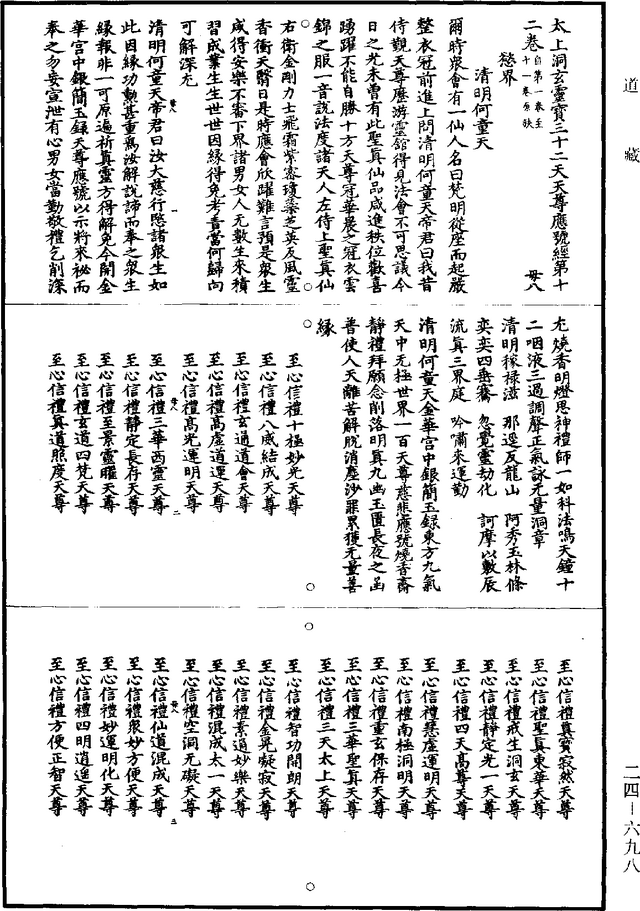 道藏
太上洞玄靈寶三十二天天尊應號經第十
二卷 自第一卷至十一卷原缺 毋八
慾界
清明何童天
爾時衆會有一仙人名曰梵明從座而起嚴
整衣冠前進上問清明何童天帝君曰我昔
侍觀天尊歷游靈舘得見法會不可思議今
日之光未曾有此聖真仙品咸進秩位歡喜
踴躍不能自勝十方天尊冠華晨之冠衣雲
錦之服一音說法度諸天人左侍上聖真仙
右衛金剛力士飛霜紫㴞瓊蘂芝英反風靈
香衝天翳日是時應會欣躍難言預是衆生
咸得安樂不審下界諸男女人无數生來積
習成業生生世世因緣得免考責當何歸向
可解深尤
清明何童天帝君曰汝大慈行愍諸衆生如
此因緣功勳甚重爲汝解說諦而奉之衆生
緣報非一可原過祈真靈方得解免今開金
華宫中銀簡玉録天尊應號以示將來秘而
奉之勿妄宣泄有心男女當勤敬禮乞削深
尤燒香明燈思神禮師一如科法鳴天鐘十
二咽液三過調聲正氣詠无量洞章
清明稼禄滋 那逕友龍山 阿秀玉林條
奕奕四垂騫 忽覺靈劫化 訶摩以數辰
流真三界庭 吟嘯來運勤
清明何童天金華宫中銀簡玉録東方九氣
天中无極世界一百天尊慈悲應號燒香齋
靜禮拜願念削落明真九幽玉匱長夜之函
普使人天離苦解脫消塵沙罪累獲无量善
緣
至心信禮十極妙光天尊
至心信禮八威結成天尊
至心信禮玄通道會天尊
至心信禮高虛道運天尊
至心信禮高光運明天尊
至心信禮三華西靈天尊
至心信禮靜定長存天尊
至心信禮至景靈曜天尊
至心信禮玄道四梵天尊
至心信禮真道照度天尊
至心信禮真寶寂然天尊
至心信禮聖真東華天尊
至心信禮戒生洞玄天尊
至心信禮靜定光一天尊
至心信禮四天高尊天尊
至心信禮慧虛運明天尊
至心信禮南極洞明天尊
至心信禮重玄保存天尊
至心信禮三華聖真天尊
至心信禮三天太上天尊
至心信禮智功開朗天尊
至心信禮金晃凝寂天尊
至心信禮素道妙樂天尊
至心信禮混成太一天尊
至心信禮空洞无礙天尊
至心信禮仙道混成天尊
至心信禮衆妙方便天尊
至心信禮妙運明化天尊
至心信禮四明逍遥天尊
至心信禮方便正智天尊
毋八 一
毋八 二
毋八 三
二四—六九八